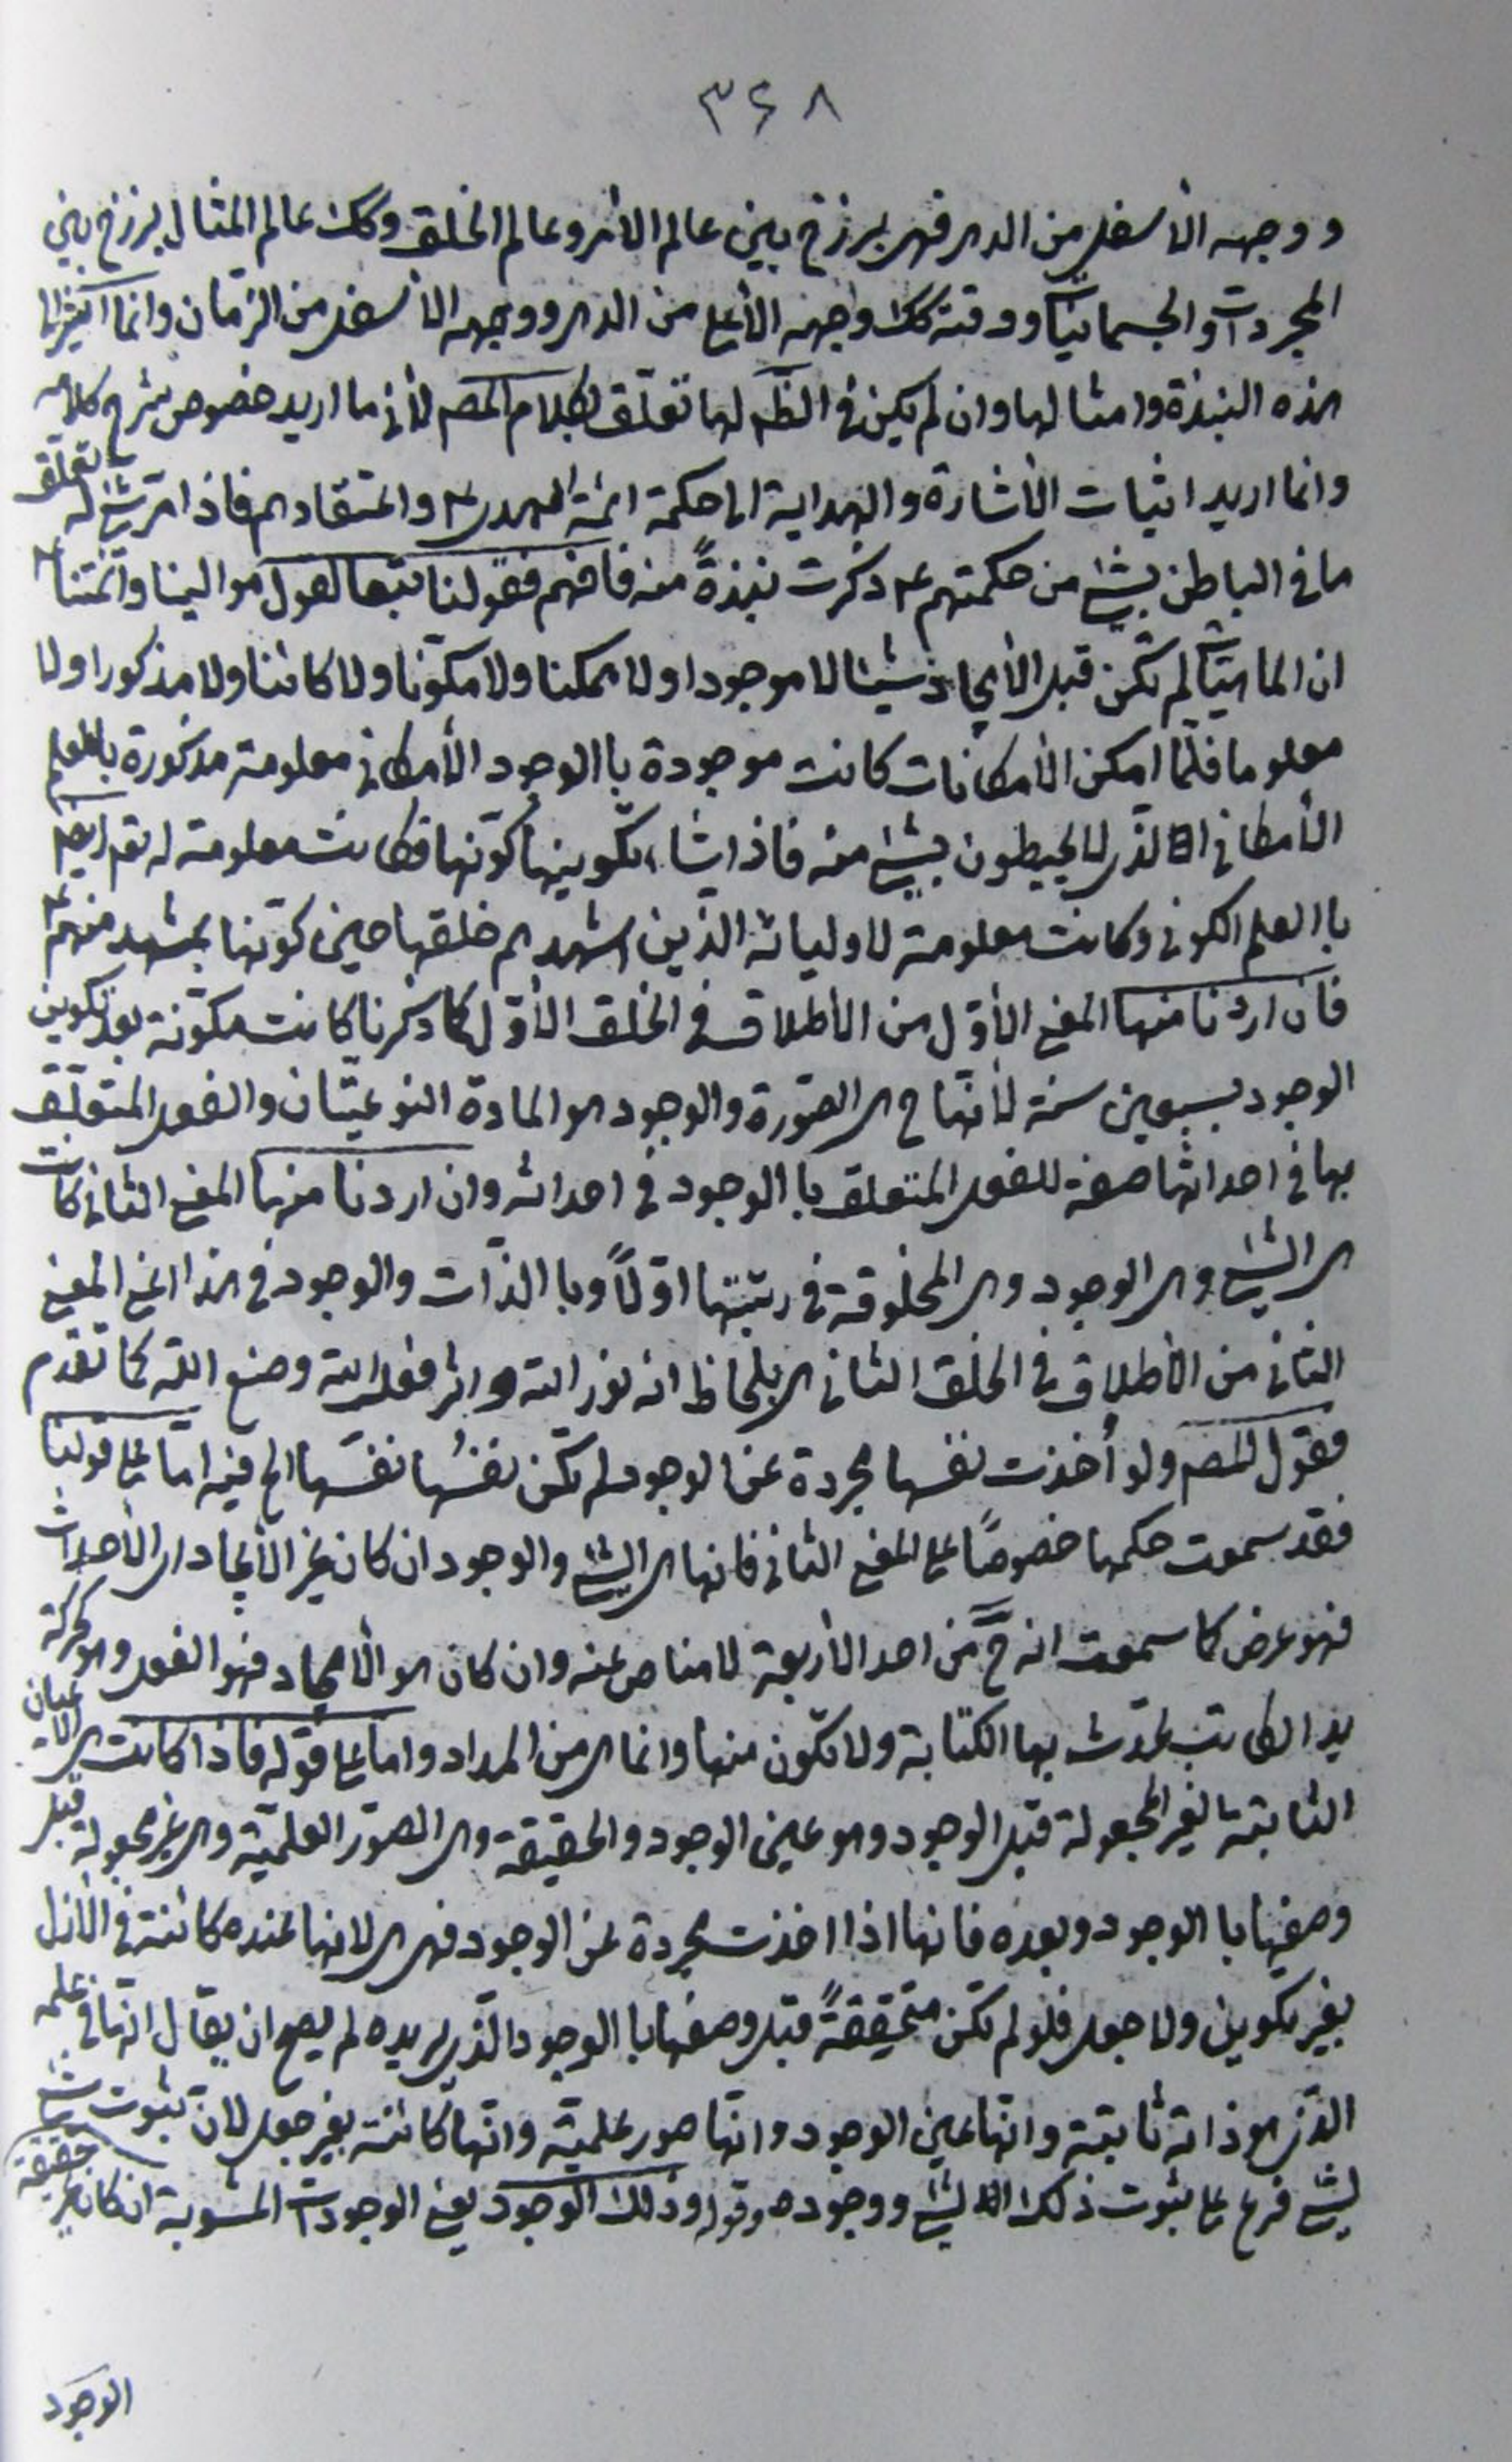 ٣۶٨
ووجهه الأسفل من الدهر فهى برزخ بين عالم الأمر وعالم الخلق وكك عالم المثال برزخ بين
المجردات والجسمانيات ووقته كك وجهه الأعلى من الدهر ووجهه الأسفل من الزمان وانما اكثر
هذه النبذة وامثالها وان لم يكن فى الظ لها تعلّق بكلام المصه لأنى ما اريد خصوص شرح كلامه
وانما اريد اثبات الأشارة والهداية الى حكمة ائمة الهدى ع واعتقادهم فاذا مرّ شئ له تعلق
ما فى الباطن بشئ من حكمتهم ع ذكرت نبذةً منه فافهم فقولنا تبعا لقول موالينا وائمتنا ع
ان الماهيات لم تكن قبل الأيجاد شيئا لا موجودا ولا ممكنا ولا مكوّنا ولا كائنا ولا مذكورا ولا
معلوما فلمّا امكن الأمكانات كانت موجودة باالوجود الأمكانى معلومة مذكورة بالعلم
الأمكانى الذى لا يحيطون بشئ منه فاذا شاء تكوينها كوّنها فكانت معلومة له تع ايضا
باالعلم الكونى وكانت معلومة لاوليائه الذين اشهدهم خلقها حين كوّنها بمشهد منهم ع
فان اردنا منها المعنى الأوّل من الأطلاق فى الخلق الأوّل كما ذكرنا كانت مكوّنة بعد تكوين
الوجود بسبعين سنة لأنّها ح هى الصّورة والوجود هو المادة النوعيّتان والفعل المتعلّق
بها فى احداثها صفة للفعل المتعلق باالوجود فى احداثه وان اردنا منها المعنى الثانى كانت
هى الشئ وهى الوجود وهى المخلوقة فى رتبتها اوّلاً وباالذّات والوجود فى هذا المعنى
الثانى من الأطلاق فى الخلق الثانى هى بلحاظ انه نور الله واثر فعل الله وصنع الله كما تقدم
فقول المصه ولو أخذت نفسها مجردة عن الوجود لم تكن نفسُها نفسَها الخ فيه امّا على قولنا
فقد سمعت حكمها خصوصًا على المعنى الثانى فانها هى الشئ والوجود ان كان غير الأيجاد اى الأحداث
فهو عرض كما سمعت انه ح من احد الأربعة لا مناص عنه وان كان هو الأيجاد فهو الفعل وهو كحركة
يد الكاتب تحدث بها الكتابة ولا تكون منها وانما هى من المداد واما على قوله فاذا كانت هى الاعيان
الثابتة الغير المجعولة قبل الوجود وهو عين الوجود والحقيقة وهى الصور العلميّة وهى غير مجعولة قبل
وصفها باالوجود وبعده فانها اذا اخذت مجردة عن الوجود فهى هى لانها عنده كائنة فى الأزل
بغير تكوين ولا جعل فلو لم تكن متحققةً قبل وصفها باالوجود الّذى يريده لم يصح ان يقال انها فى علمه
الذى هو ذاته ثابتة وانها عين الوجود وانها صور علمية وانها كائنة بغير جعل لان ثبوت شئ
لشئ فرع على ثبوت ذلك الشئ ووجوده وقوله وذلك الوجود يعنى الوجودات المشوبة ان كان غير حقيقة
الوجود